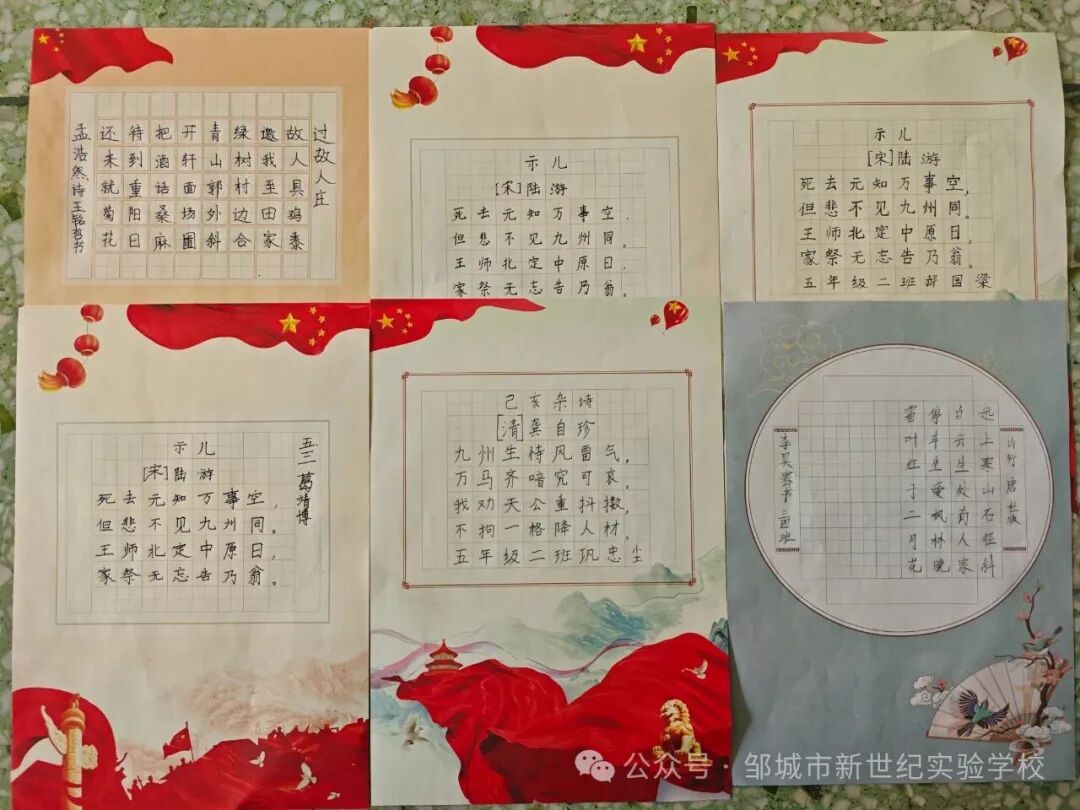 过故人庄
故人具鸡黍
邀我至田家
绿树村边合
青山郭外斜
开轩面场圃
把酒话桑麻
待到重阳日
还来就菊花
孟浩然诗 王铭哲书
示儿
[宋]陆游
死去元知万事空，
但悲不见九州同。
王师北定中原日，
家祭无忘告乃翁。
示儿
[宋]陆游
死去元知万事空，
但悲不见九州同。
王师北定中原日，
家祭无忘告乃翁。
五年级二班郝国梁
五二 葛靖博
示儿
[宋]陆游
死去元知万事空，
但悲不见九州同。
王师北定中原日，
家祭无忘告乃翁。
己亥杂诗
[清]龚自珍
九州生恃风雷气，
万马齐喑究可哀。
我劝天公重抖擞，
不拘一格降人材。
五年级二班巩忠尘
山行 唐 杜牧
远上寒山石径斜
白云生处有人家
停车坐爱枫林晚
霜叶红于二月花
李昊 书 三四班
公众号·邹城市新世纪实验学校